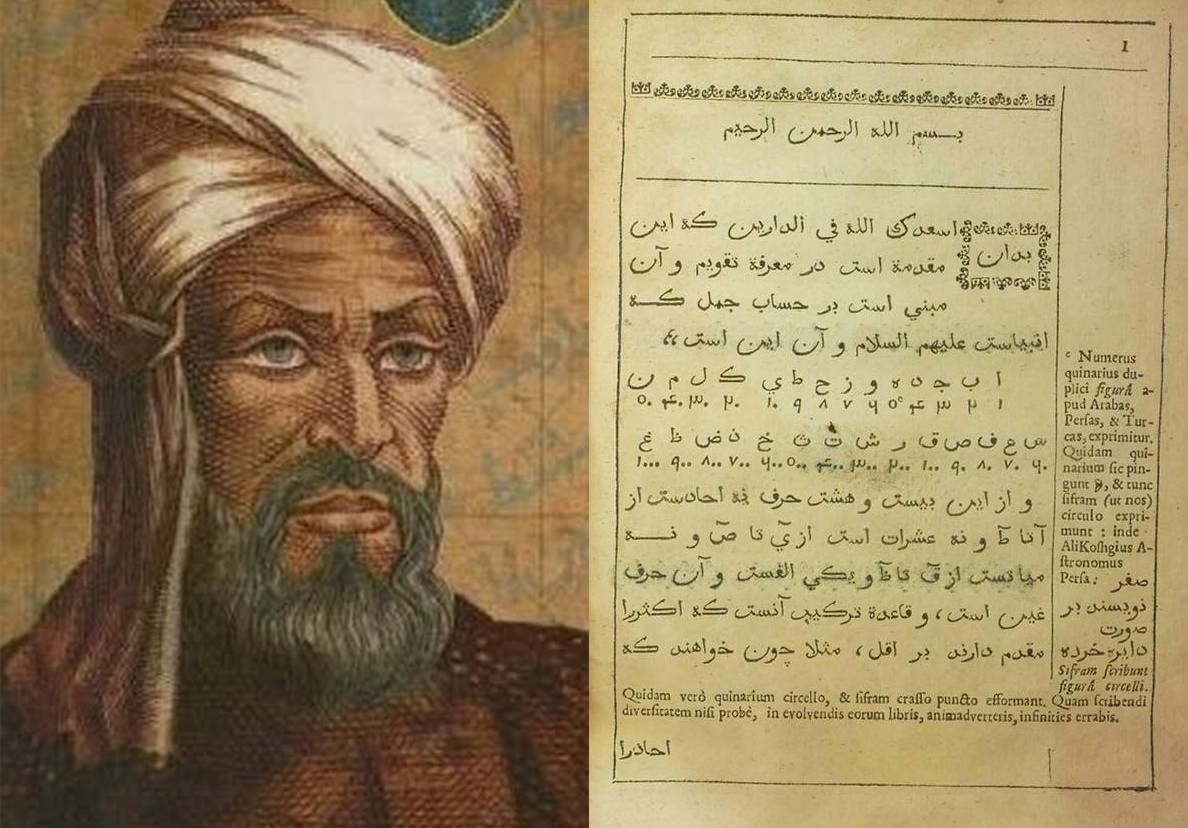 1
بسم الله الرحمن الرحيم
بدان اسعدك الله في الدارين كه اين
مقدمة است در معرفة تقويم و آن
مبني است بر حساب جمل كه
انبياست عليهم السلام و آن اين است
ا ب ج د ه و ز ح ط ي ك ل م ن
۱ ۲ ۳ ۴ ۵ ۶ ۷ ۸ ۹ ۱۰ ۲۰ ۳۰ ۴۰ ۵۰
س ع ف ص ق ر ش ت ث خ ذ ض ظ غ
۶۰ ۷۰ ۸۰ ۹۰ ۱۰۰ ۲۰۰ ۳۰۰ ۴۰۰ ۵۰۰ ۶۰۰ ۷۰۰ ۸۰۰ ۹۰۰ ۱۰۰۰
و از اين بيست و هشت حرف نه احادست از
آ تا ط و نه عشرات است از ي تا ص و نه
مياتست از ق تا ظ و يكي الفست و آن حرف
غين است، و قاعدة تركيب آنست كه اكثررا
مقدم دارند بر اقل، مثلا چون خواهند كه
احادرا
c Numerus
quinarius du-
plici figurâ a-
pud Arabas,
Persas, & Tur-
cas, exprimitur.
Quidam qui-
narium sic pin-
gunt, & tunc
sifram (ut nos)
circulo expri-
munt: inde
Ali Koshgius A-
stronomus
Persa: صفر
نويسند بر
صورت
دايره خرده
Sifram scribunt
figurâ circelli.
Quidam verò quinarium circello, & sifram crasso puncto efformant. Quam scribendi
diversitatem nisi probè, in evolvendis eorum libris, animadverteris, infinities errabis.